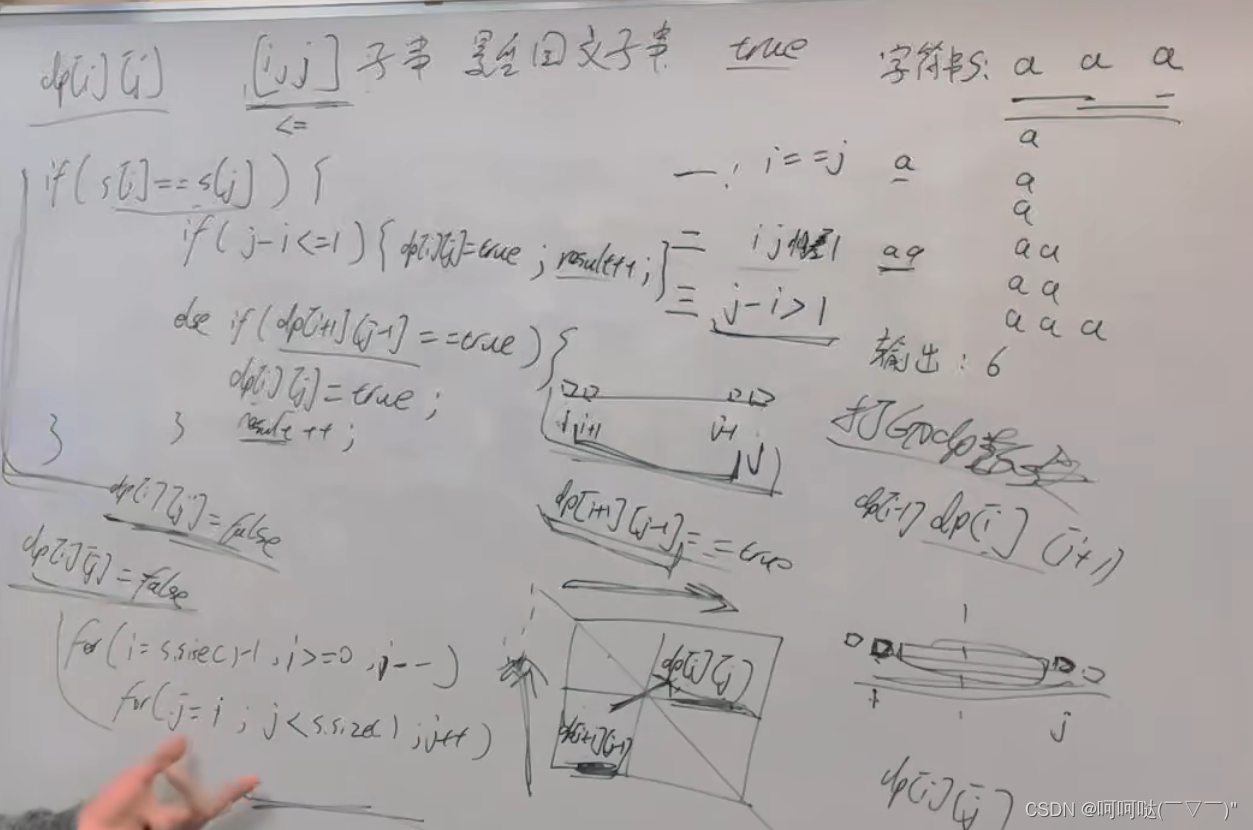 dp[i][j] [i,j] 子串 是否回文子串 true
<=
字符串s: a a a
a
a
a
aa
aa
aaa
输出: 6
if(s[i]==s[j]) {
if(j-i<=1){dp[i][j]=true; result++;}
else if(dp[i+1][j-1]==true){
dp[i][j]=true;
} result++;
}
dp[i][j]=false
dp[i][j]=false
for(i=s.size()-1,i>=0,i--)
for(j=i; j<s.size();j++)
一: i==j a
二 i j 相差1 aa
三 j-i>1
i i+1 j-1 j
dp[i+1][j-1]==true
dp[i][j]
dp[i+1][j-1]
打印dp数组
dp[i-1] dp[i] (i+1)
i j
dp[i][j]
CSDN @呵呵哒(￣▽￣)"